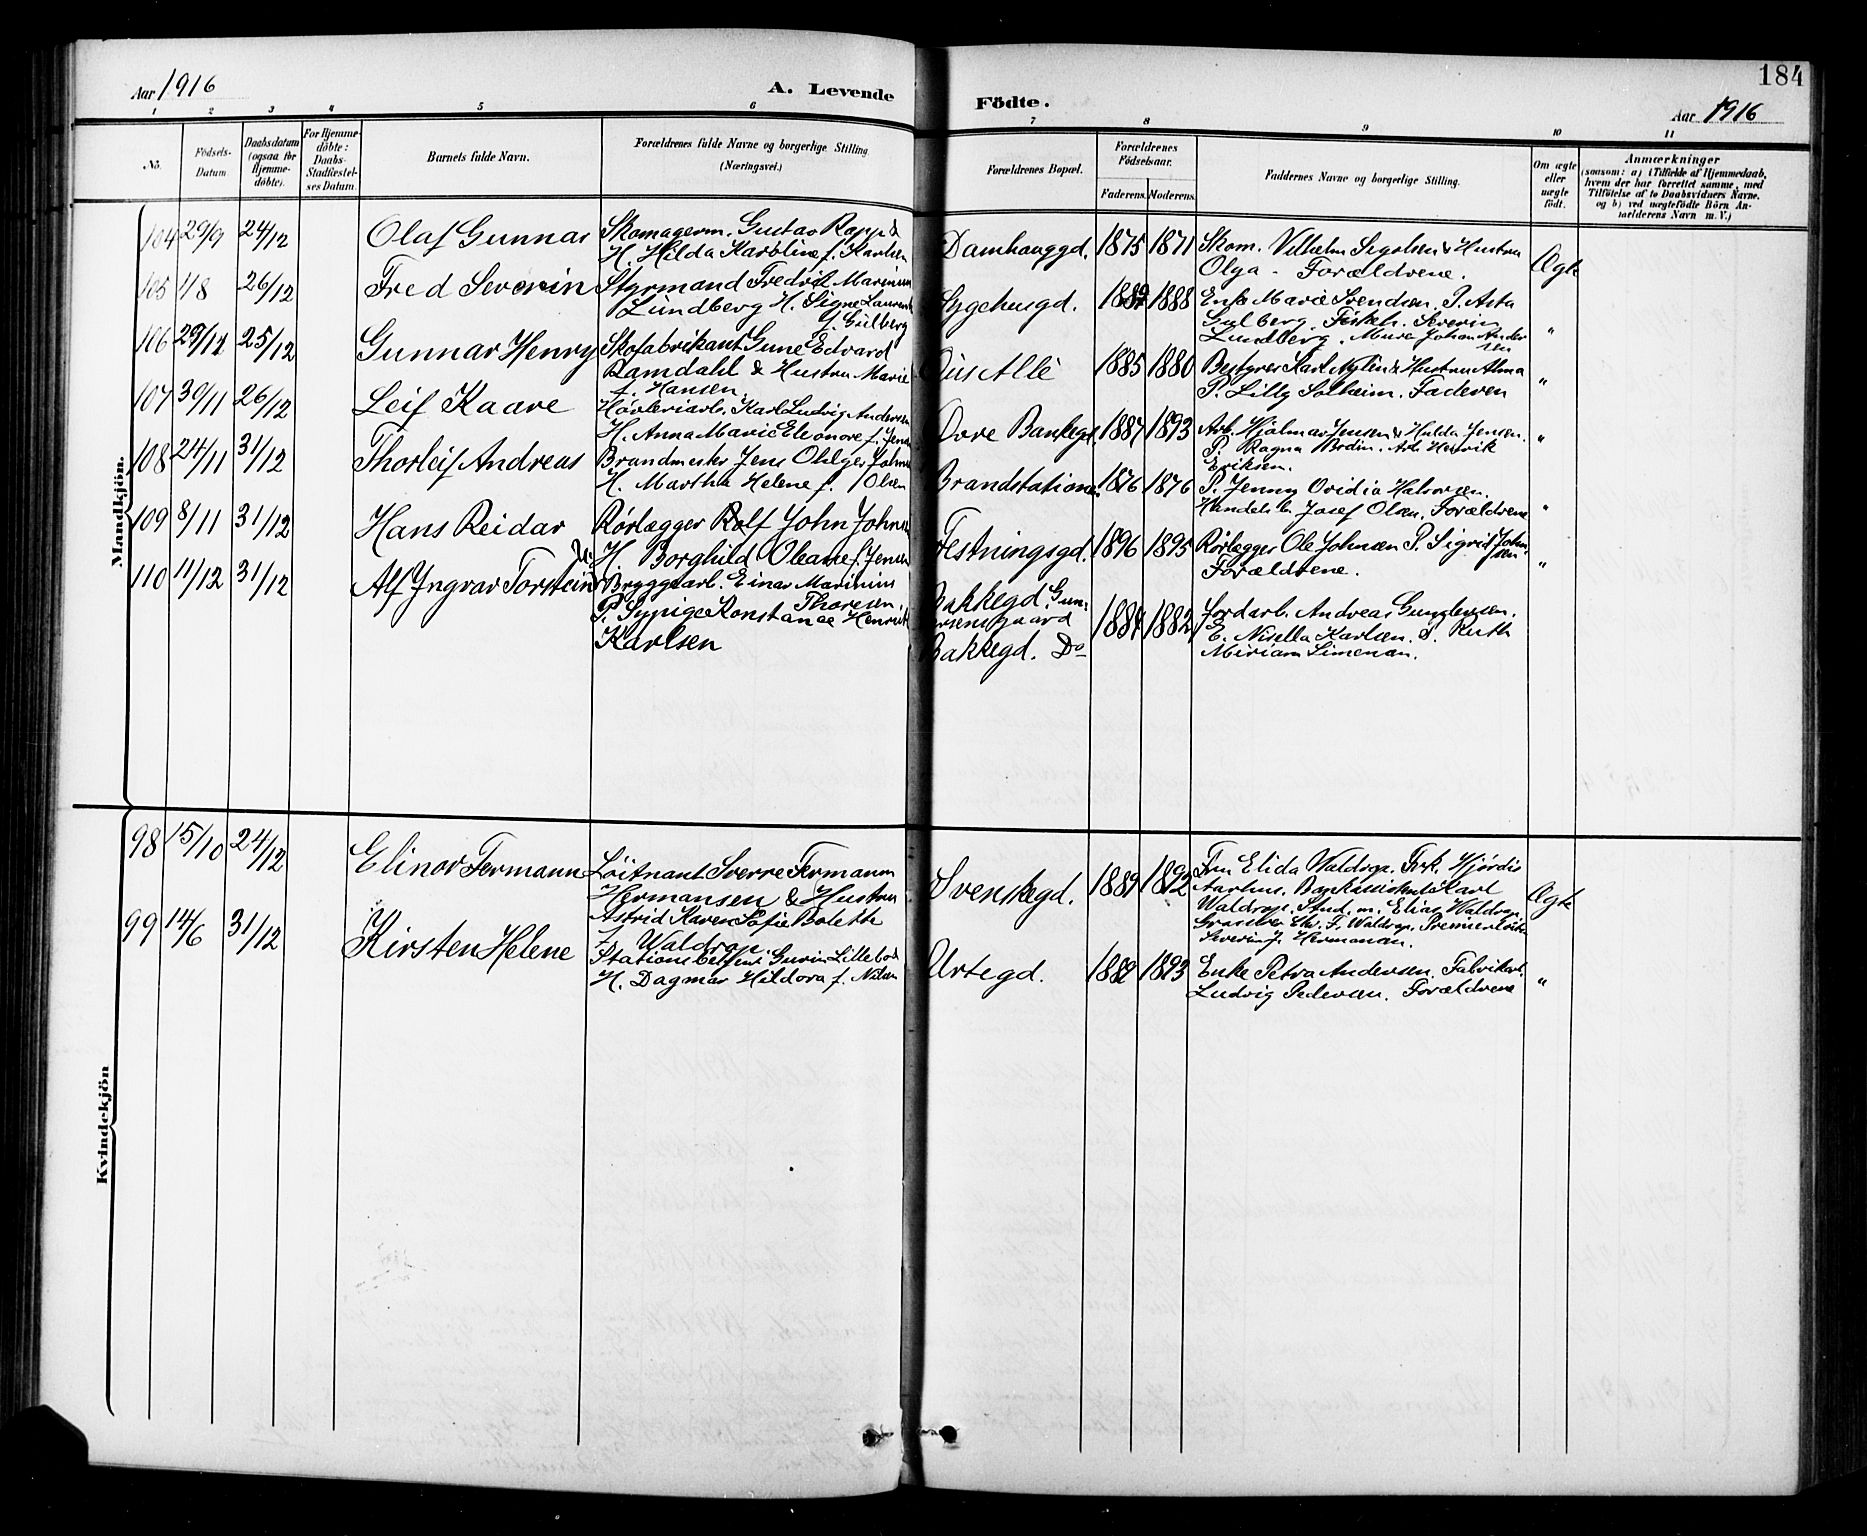 184
Aar 1916
A. Levende
Födte.
Aar 1916
1 2 3 4 5 6 7 8 9 10 11
No.
Födsels-Datum
Daabsdatum (ogsaa for Hjemme-döbte).
For Hjemme-döbte: Daabs-Stadfæstel-ses Datum.
Barnets fulde Navn.
Forældrenes fulde Navne og borgerlige Stilling (Næringsvei.)
Forældrenes Bopæl.
Forældrenes Födselsaar.
Faderens. Moderens.
Faddernes Navne og borgerlige Stilling.
Om ægte eller uægte födt.
Anmærkninger
(saasom: a) i Tilfælde af Hjemmedaab, hvem der har forrettet samme, med Tilföielse af to Daabsvidners Navne, og b) ved uægtefödte Börn An-mælderens Navn m. V.)
Mandkjön.
104 29/9 24/12 Olaf Gunnar
Skomagerm. Gustav
H. Hilda Karoline f. Karlsen
Damhauggd. 1875 1871
Skom. Vilhelm & Hustru
Olga - Forældrene.
Ægte
105 26/12 Fred Severin
Styrmand Fredrik Marinius
Lundberg H. Signe
f. Gulberg
Sygehusgd. 1888
Enke Marie Svendsen, P. Asta
Gulberg, Fiskeh. Severin
Lundberg, Murer Johan Ander
sen
"
106 25/12 Gunnar Henry
Skofabrikant Gune Edvard
Ramdahl & Hustru Marie
f. Hansen
Öus Allé 1885 1880
Bestyrer Karl Nylén & Hustru Alma
P. Lilly Solheim. Faderen
"
107 30/11 26/12 Leif Kaare
Høvleriarb. Karl Ludvig Andersen
H. Anna Marie Eleonore f. Jensen
Øvre Bankegd. 1887 1893
Arb. Hjalmar Jensen & Hulda Jensen.
P. Ragna Bodin. Arb. Henrik
Eriksen.
"
108 24/11 31/12 Thorleif Andreas
Brandmester Jens
H. Martha Helene f. Olsen
Brandstationen 1876 1876
P. Jenny Ovidia Halvorsen.
Handels b. Josef Olsen. Forældrene
"
109 8/11 31/12 Hans Reidar
Rørlægger Rolf John
H. Borghild Oleane f. Jensen
Festningsgd. 1896 1895
Rørlægger Ole Johnsen P. Sigrid John-
sen
Forældrene.
"
110 11/12 31/12 Alf Yngvar Torstein
Bryggearb. Einar Marinius
Thoresen,
P. Sypige Konstanse
Karlsen
Bakkegd. Gun-
Bakkegd. Do
1882
Jordarb. Andreas
E. Karlsen. P. Ruth
Miriam Simensen.
Kvindekjön
98 15/10 24/12 Elinor Fermann
Löitnant Sverre Fermann
Hermansen & Hustru
Astrid Karen Sofie Bolette
f. Waldrop
Svenskegd. 1889 1892
Fru Elida Waldrop. Frk. Hjørdis
Aarhus. Karl
Waldrop. Stud. m. Elias Waldrop.
F. Waldrop.
Hermansen.
Ægte
99 14/6 31/12 Kirsten Helene
Stationsbetjent
H. Dagmar Hildora f. Nilsen
Urtegd. 1893
Enke Petra Andersen. Fabrikarb.
Ludvig Pedersen. Forældrene
"